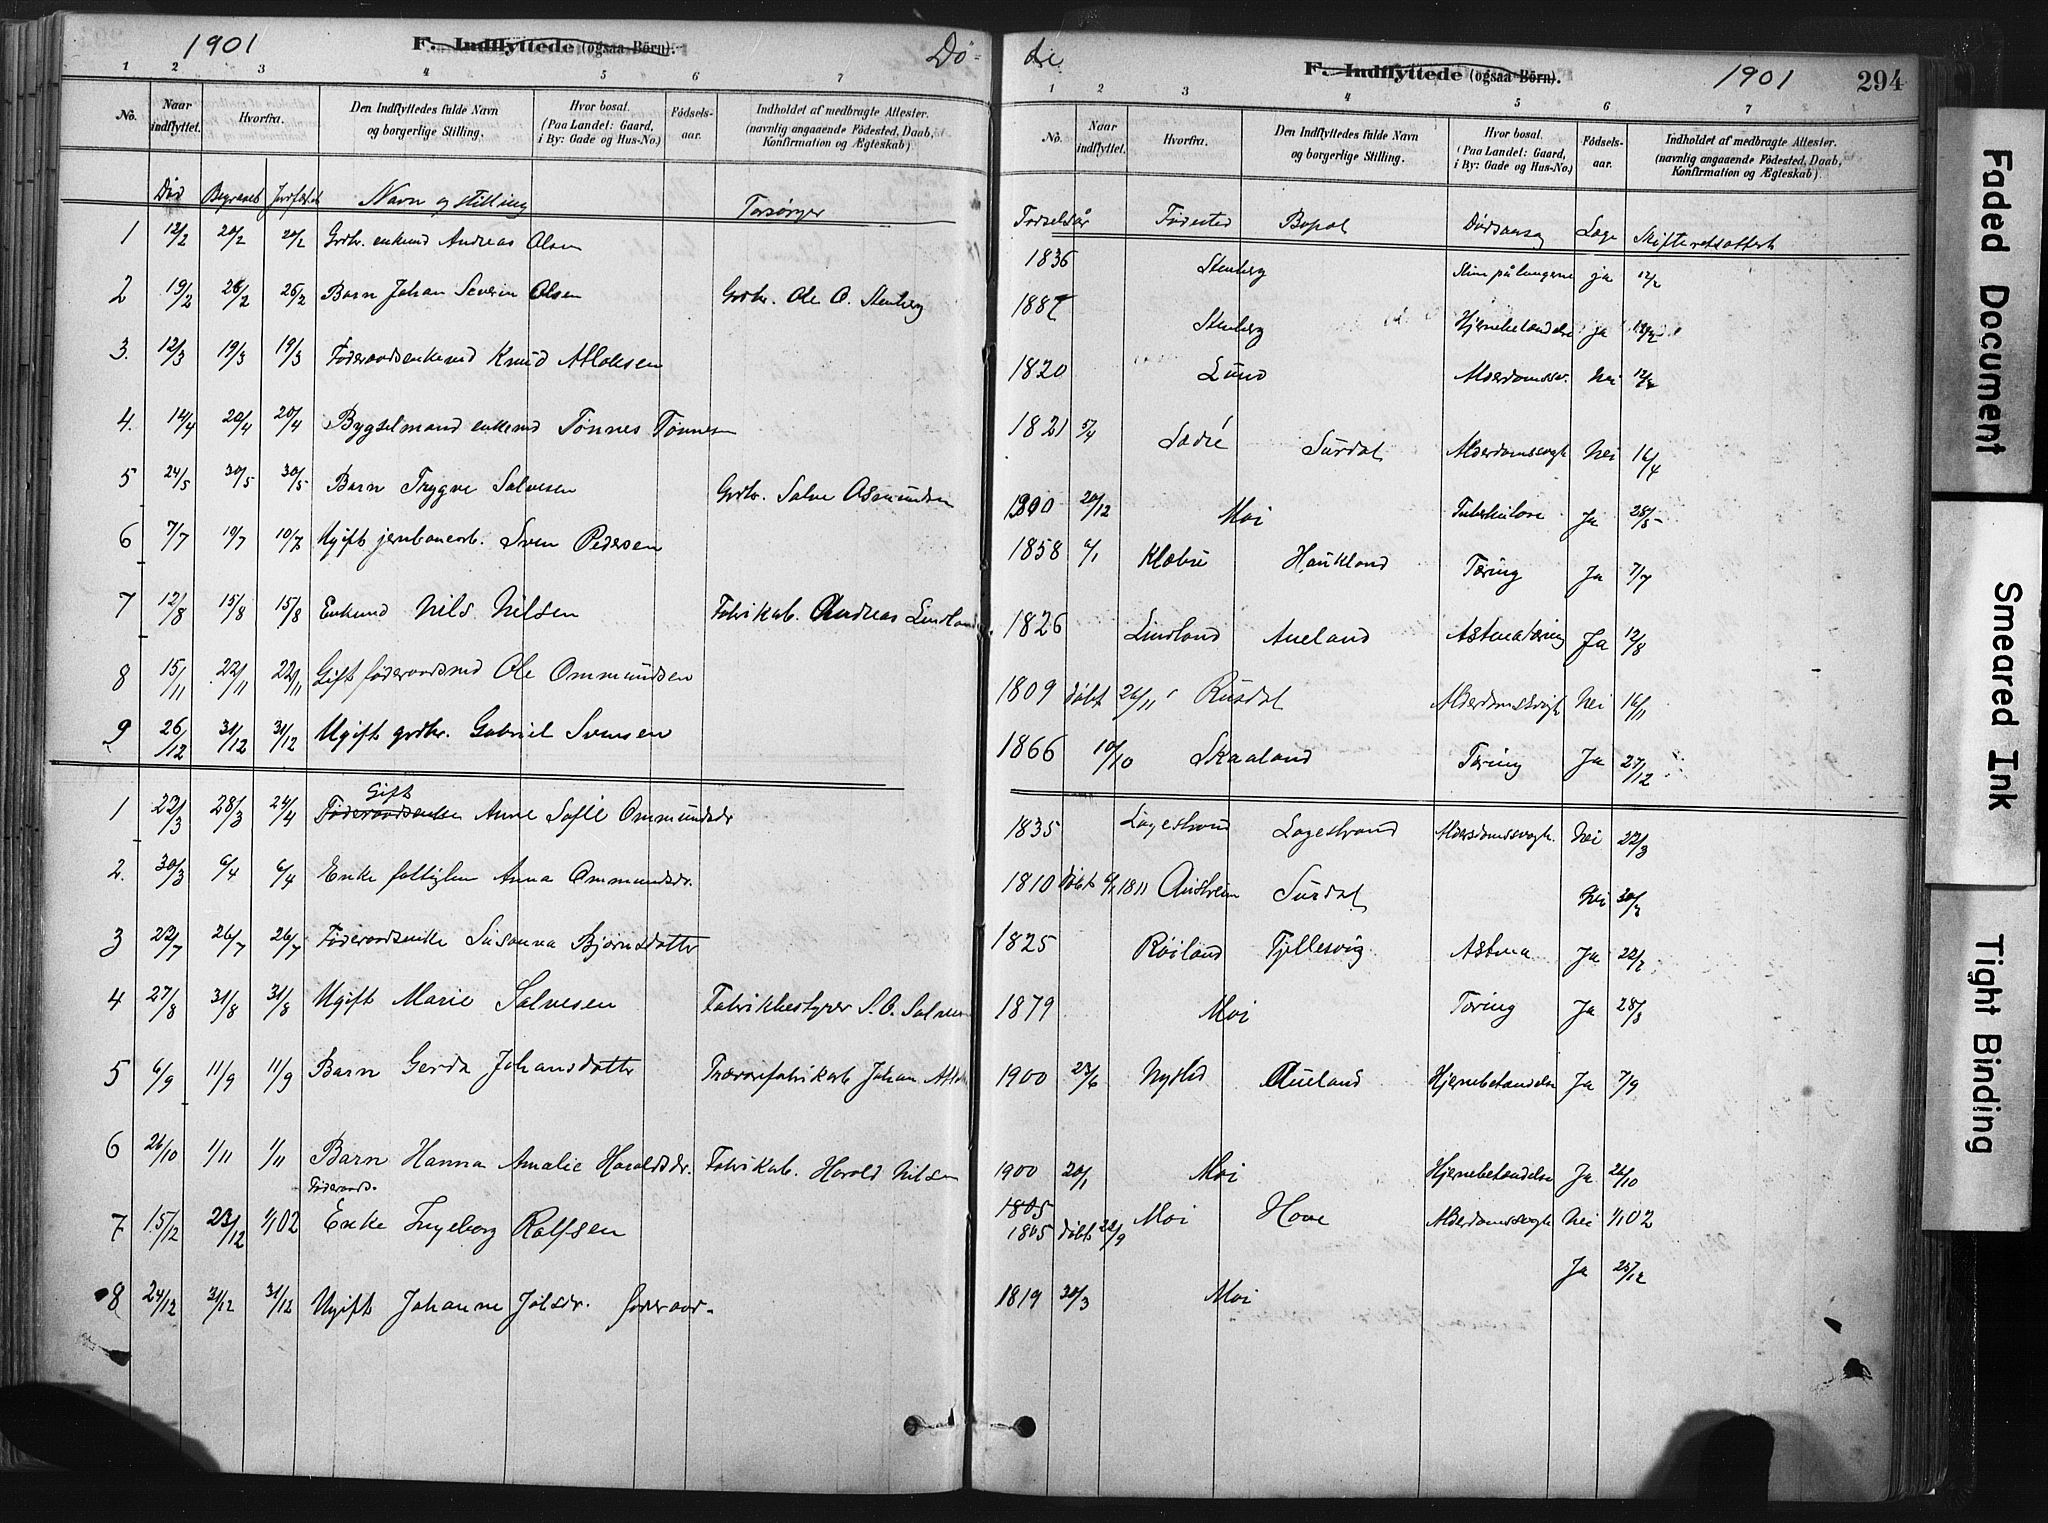 1901 F. Indflyttede (ogsaa Börn). Dø-
1 2 3 4 5 6 7
No. Naar indflyttet. Hvorfra. Den Indflyttedes fulde Navn og borgerlige Stilling. Hvor bosat. (Paa Landet: Gaard, i By: Gade og Hus-No.) Födsels-aar. Indholdet af medbragte Attester. (navnlig angaaende Födested, Daab, Konfirmation og Ægteskab).
Død Begravet Jordfæstet Navn og stilling Forsørger
1 12/2 20/2 20/2 Grdbr. enkemd Andreas Olsen
2 19/2 26/2 26/2 Barn Johan Severin Olsen Grdbr. Ole O. Stenberg
3. 12/3 19/3 19/3 Føderaadsenkemd Knud Atlaksen
4. 14/4 20/4 20/4 Bygselmand enkemd Tønnes Tønnesen
5 24/5 30/5 30/5 Barn Trygve Salvesen Grdbr. Salve Osmundsen
6 7/7 10/7 10/7 Ugift jernbanearb. Sven Pedersen
7 12/8 15/8 15/8 Enkemd Nils Nilsen Fabrikarb. Andreas Lindland
8 15/11 22/11 22/11 Gift føderaadsmd Ole Ommundsen
9 26/12 31/12 31/12 Ugift grdbr. Gabriel Svensen
Gift
1 22/3 28/3 24/4 Føderaadsenke Anne Sofie Ommundsdr
2. 30/3 6/4 6/4 Enke fattiglem Anna Ommundsdr.
3 22/7 26/7 26/7 Føderaadsenke Susanna Bjørnsdatter
4 27/8 31/8 31/8 Ugift Marie Salvesen Fabrikbestyrer S. O. Salvesen
5 6/9 11/9 11/9 Barn Gerda Johansdatter Trævarefabrikarb. Johan
6 26/10 1/11 1/11 Barn Hanna Amalie Haraldsdr. Fabrikarb. Harald Nilsen
Føderaads-
7 15/12 23/12 1/1 02 Enke Ingeborg Rolfsen
8 24/12 31/12 31/12 Ugift Johanne Joelsdr. føderaad-
de. F. Indflyttede (ogsaa Börn). 1901 294
1 2 3 4 5 6 7
No. Naar indflyttet. Hvorfra. Den Indflyttedes fulde Navn og borgerlige Stilling. Hvor bosat. (Paa Landet: Gaard, i By: Gade og Hus-No.) Födsels-aar. Indholdet af medbragte Attester. (navnlig angaaende Födested, Daab, Konfirmation og Ægteskab).
Fødselsår Fødested Bopæl Dødsaarsag Læge Skifteretsattest
1836 Stenberg Slim på lungerne ja 12/2
1887 Stenberg Hjernebetændelse ja
1820 Lund Alderdomssv. Nei
1821 5/4 Surdal Alderdomssvagh Nei 16/4
1900 20/12 Moi Tuberkulose Ja 28/5
1858 6/1 Klæbu Haukland Tæring Ja 7/7
1826 Lindland Aueland Astma tæring Ja 12/8
1809 døbt 26/11 Rusdal Alderdomssvagh Nei 16/11
1866 10/10 Skaaland Tæring Ja 27/12
1835 Lagestrand Lagestrand Aldersdomssvagh. Nei 22/3
1810 døbt 6/1 1811 Austrum Surdal Nei 30/3
1825 Røiland Fjellesvig Astma Ja 22/7
1879 Moi Tæring Ja 28/8
1900 23/6 Nysted Aueland Hjernebetændelse Ja 7/9
1900 20/1 Moi Hjernebetændelse Ja 26/10
1805
1805 døbt 22/9 Moi Hove Alderdomssvagh Nei 1/1 02
Ja 25/12
1819 30/3 Moi
Faded Document
Smeared Ink
Tight Binding